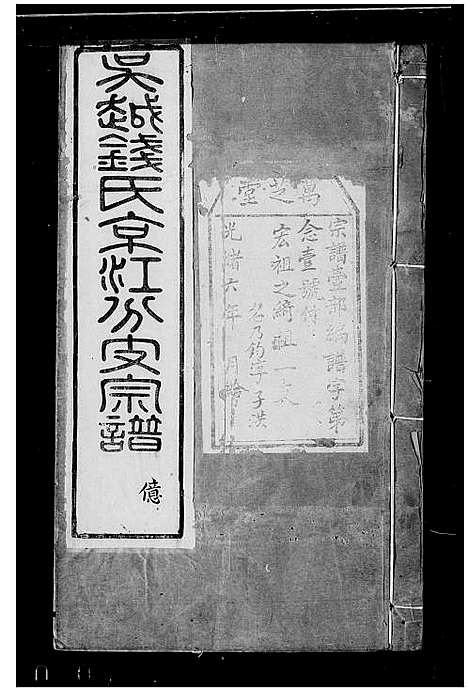 吳越錢氏京江分支宗譜
億
萬芝堂
宗譜壹部編譜字第
念壹號付
宏祖之綺祖一大
名乃鈞字子洪
光緒六年 月 給